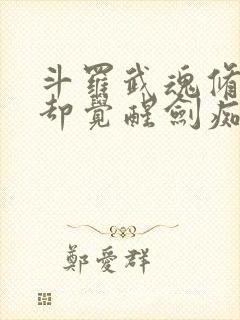 斗羅武魂脩
却覺醒劍痴
鄭愛群